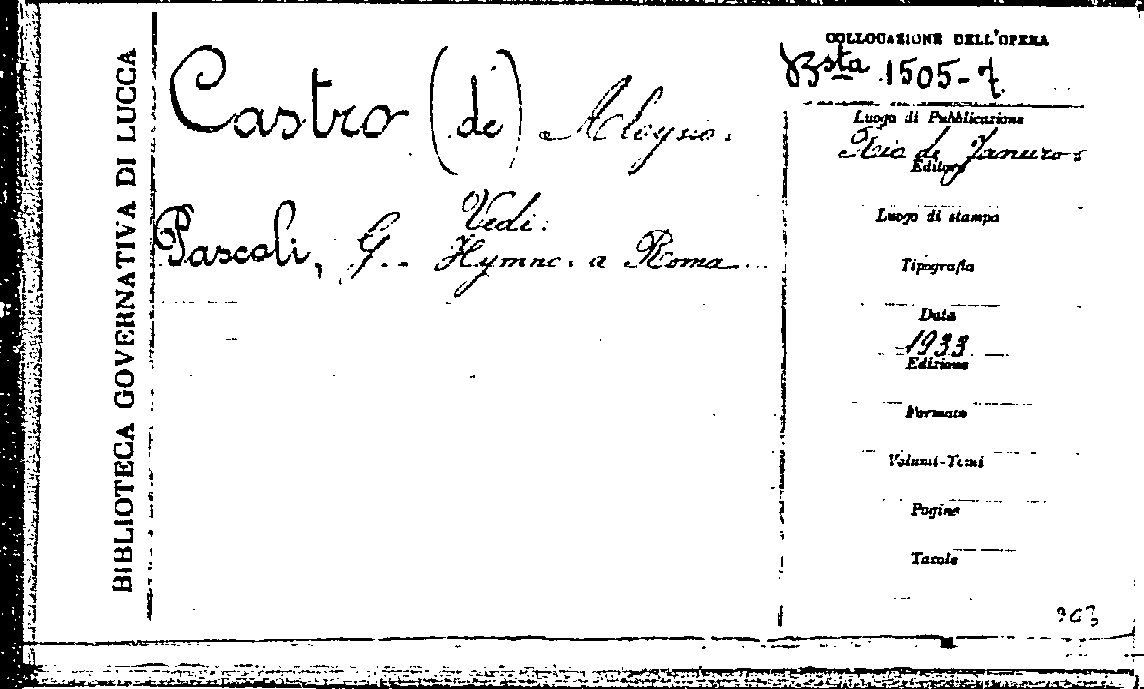 BIBLIOTECA GOVERNATIVA DI LUCCA
Castro (de) Aloysio.
Vedi:
Pascoli, G.. Hymno. a Roma...
COLLOCAZIONE DELL'OPERA
Bsta 1505-7
Luogo di Pubblicazione
Rio de Janeiro
Editore
Luogo di stampa
Tipografia
Data
1933
Edizione
Formato
Volumi-Tomi
Pagine
Tavole